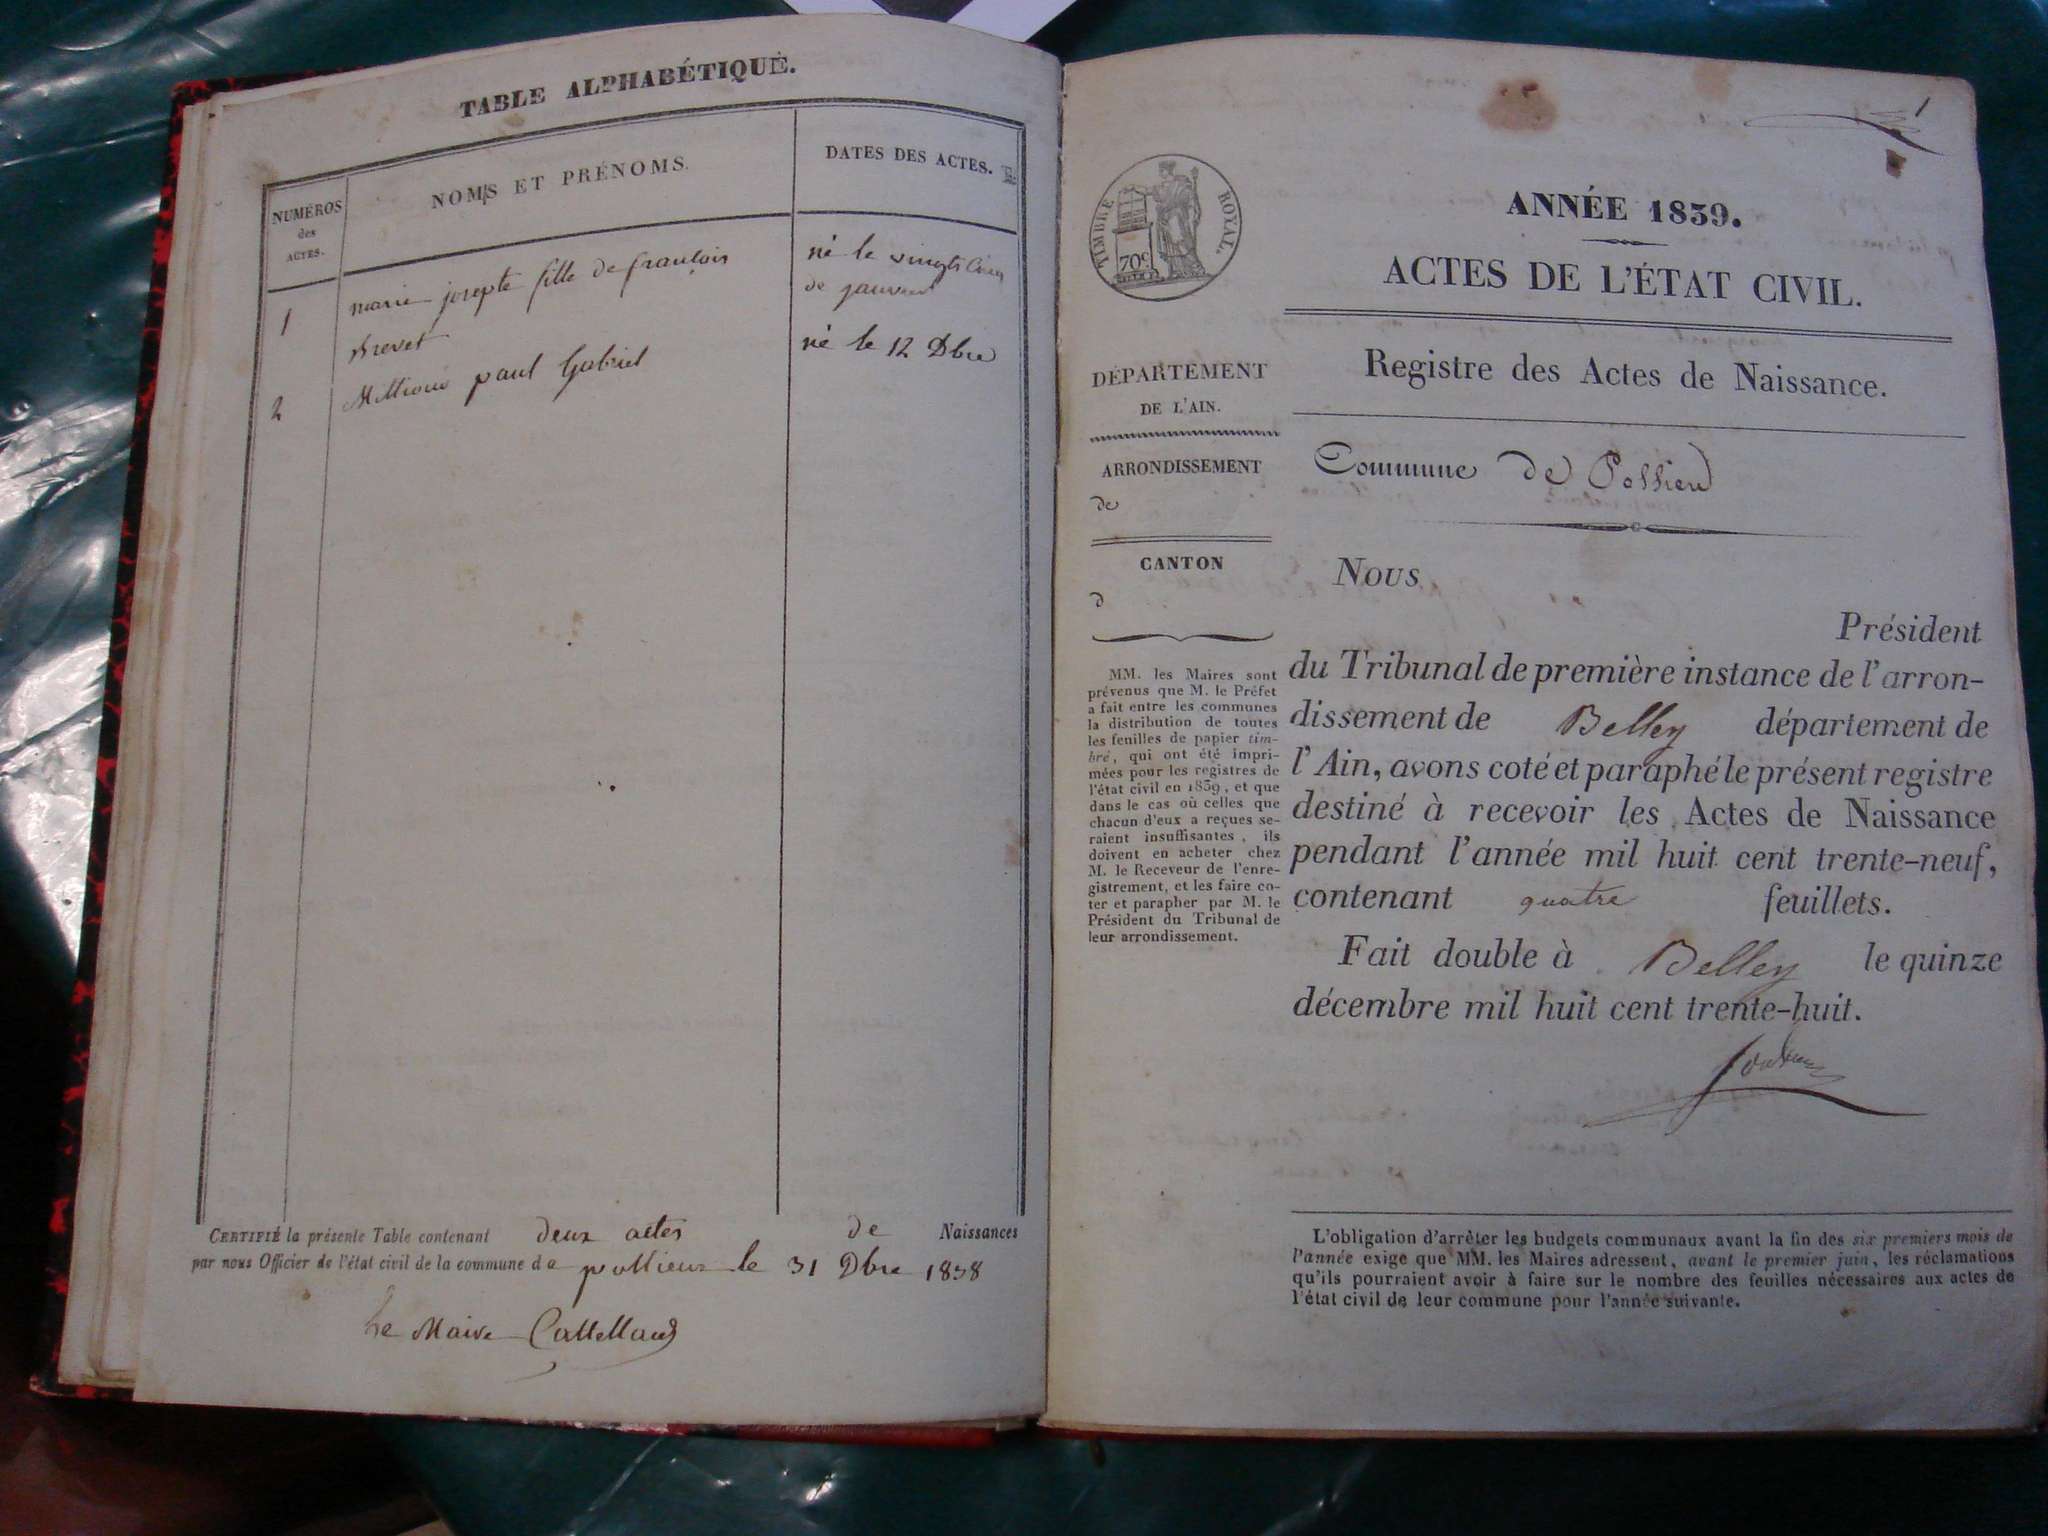 TABLE ALPHABÉTIQUE.
NUMÉROS
des
ACTES.
NOMS ET PRÉNOMS.
DATES DES ACTES.
1
marie josepte fille de françois
Brevet
né le vingt cinq
de janvier
2
Millioux paul Gabriel
né le 12 Dbre
CERTIFIÉ la présente Table contenant deux actes de Naissances
par nous Officier de l'état civil de la commune de pollieux le 31 Dbre 1838
Le Maire Cattelland
1
TIMBRE ROYAL.
70c
ANNÉE 1839.
ACTES DE L'ÉTAT CIVIL.
DÉPARTEMENT
DE L'AIN.
ARRONDISSEMENT
de
CANTON
d
MM. les Maires sont
prévenus que M. le Préfet
a fait entre les communes
la distribution de toutes
les feuilles de papier tim-
bré, qui ont été impri-
mées pour les registres de
l'état civil en 1839, et que
dans le cas où celles que
chacun d'eux a reçues se-
raient insuffisantes, ils
doivent en acheter chez
M. le Receveur de l'enre-
gistrement, et les faire co-
ter et parapher par M. le
Président du Tribunal de
leur arrondissement.
Registre des Actes de Naissance.
Commune de Pollieu
Nous
Président
du Tribunal de première instance de l'arron-
dissement de Belley département de
l'Ain, avons coté et paraphé le présent registre
destiné à recevoir les Actes de Naissance
pendant l'année mil huit cent trente-neuf,
contenant quatre feuillets.
Fait double à Belley le quinze
décembre mil huit cent trente-huit.
L'obligation d'arrêter les budgets communaux avant la fin des six premiers mois de
l'année exige que MM. les Maires adressent, avant le premier juin, les réclamations
qu'ils pourraient avoir à faire sur le nombre des feuilles nécessaires aux actes de
l'état civil de leur commune pour l'année suivante.